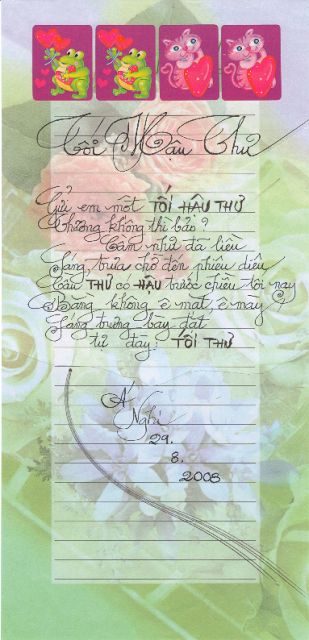 Tối Hậu Thư
Gửi em một TỐI HẬU THƯ
Thương không thì bảo?
Câm như đá liều
Sáng, trưa chờ đến phiêu diêu
Cầu THƯ có HẬU trước chiều tối nay
Bằng không ê mặt, ê mày
Lang trương bày đặt
từ đây: TỐI THƯ
Á Nghi
29.
8.
2008